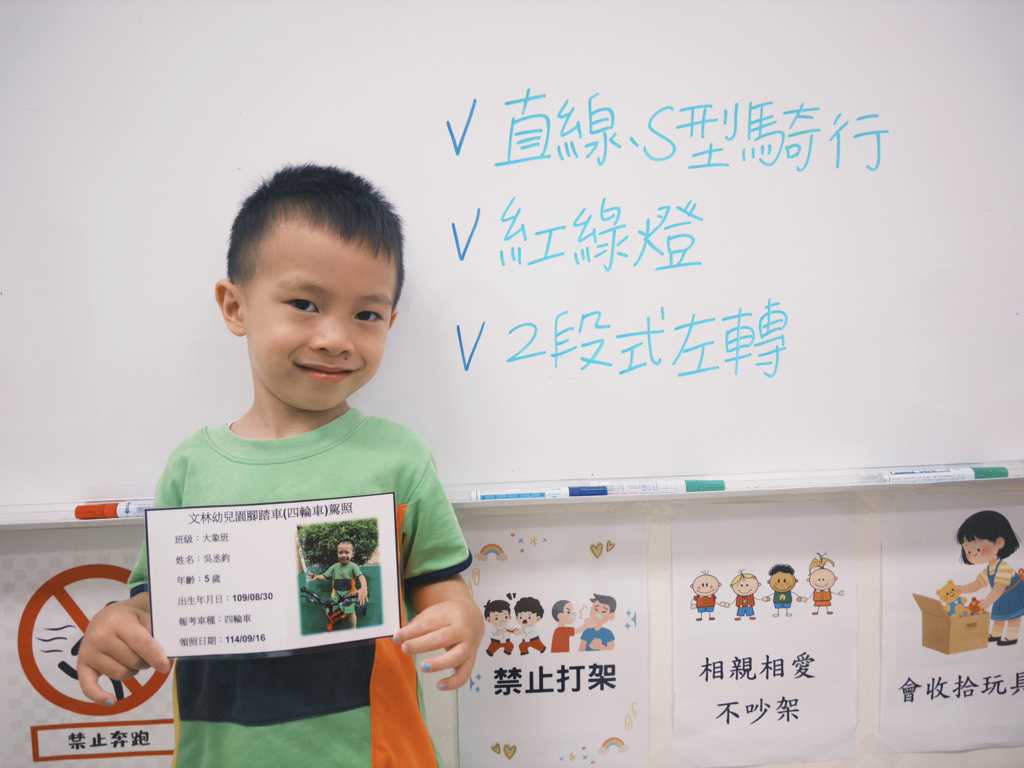 ✓ 直線、S型騎行
✓ 紅綠燈
✓ 2段式左轉
文林幼兒園腳踏車(四輪車)駕照
班級：大象班
姓名：吳丞鈞
年齡：5 歲
出生年月日：109/08/30
報考車種：四輪車
領照日期：114/09/16
禁止奔跑
禁止打架
相親相愛
不吵架
會收拾玩具